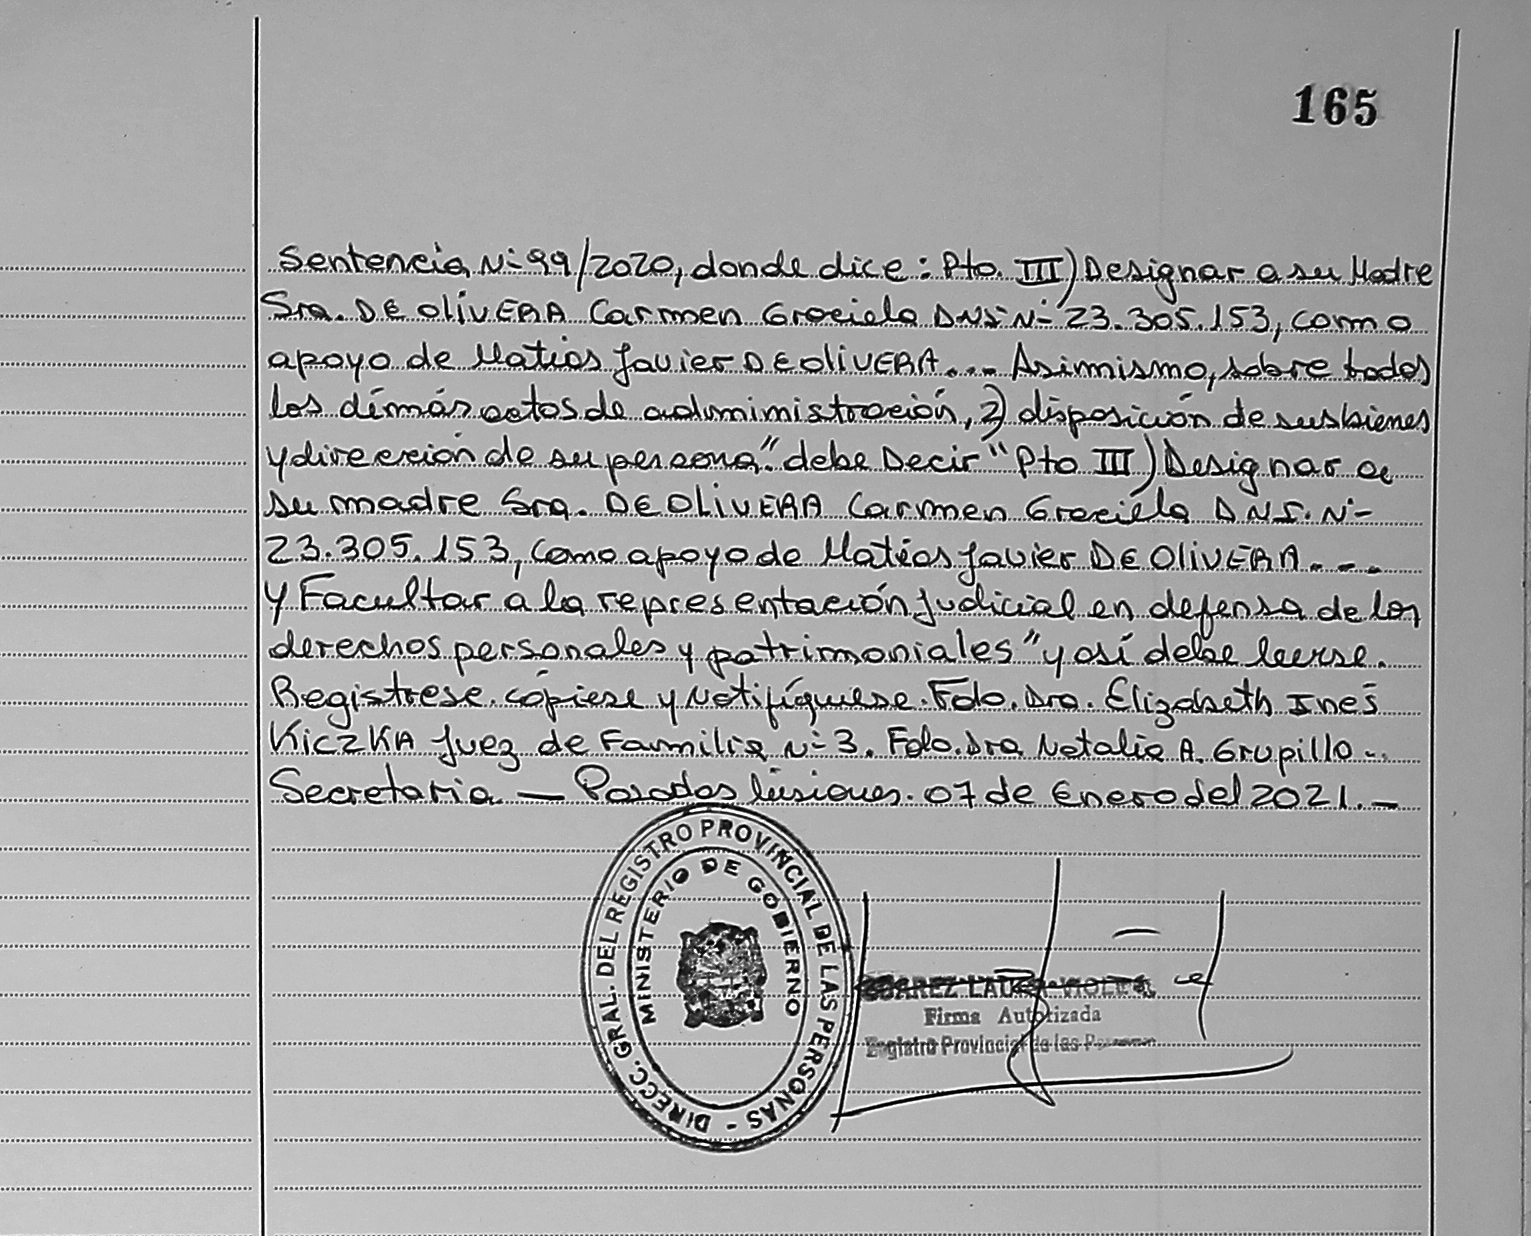 165
Sentencia N° 99/2020, donde dice: Pto. III) Designar a su Madre
Sra. DE OlívERA Carmen Graciela DNI N° 23.305.153, como
apoyo de Matías Javier DE OlivERA.... Asimismo, sobre todos
los démás actos de admimistración, 2) disposición de sus bienes
y dirección de su persona." debe Decir "Pto III) Designar a
su madre Sra. DE OlivERA Carmen Graciela D.N.I. N°
23.305.153, como apoyo de Matías Javier DE OlivERA....
Y Facultar a la representación Judicial en defensa de los
derechos personales y patrimoniales" y así debe leerse.
Regístrese. cópiese y Notifíquese. Fdo. Dra. Elizabeth Inés
KiczKA Juez de Familia N° 3. Fdo. Dra Natalia A. Grupillo..
Secretaria. — Posadas Misiones. 07 de Enero del 2021. —
DIRECC. GRAL. DEL REGISTRO PROVINCIAL DE LAS PERSONAS -
MINISTERIO DE GOBIERNO
Firma Autorizada
Registro Provincial de las